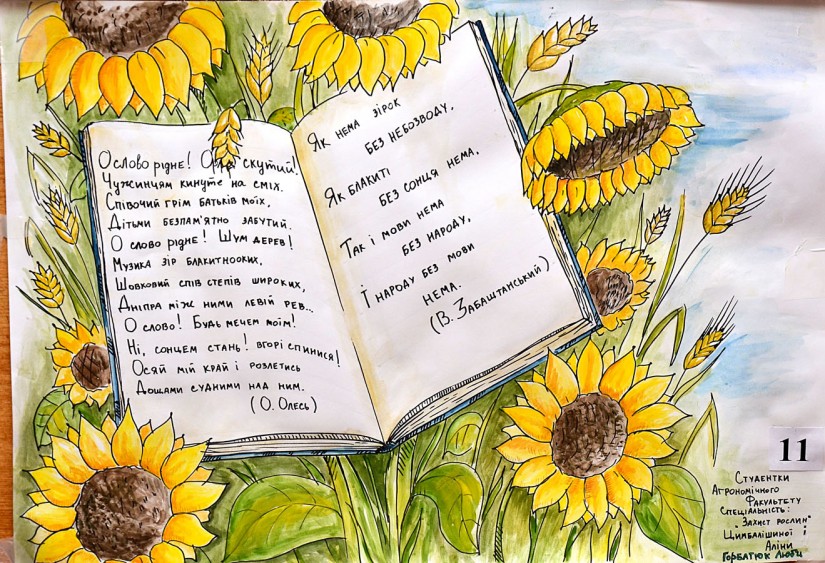 О слово рідне! Орле скутий!
Чужинцям кинуте на сміх.
Співочий грім батьків моїх,
Дітьми безпам'ятно забутий.
О слово рідне! Шум дерев!
Музика зір блакитнооких,
Шовковий спів степів широких,
Дніпра між ними левій рев...
О слово! Будь мечем моїм!
Ні, сонцем стань! вгорі спинися!
Осяй мій край і розлетись
Дощами судними над ним.
(О. Олесь)
Як нема зірок
без небозводу,
Як блакиті
без сонця нема,
Так і мови нема
без народу,
І народу без мови
нема.
(В. Забаштанський)
11
Студентки
Агрономічного
Факультету
Спеціальність:
"Захист рослин"
Цимбалішиної і
Аліни
Горбатюк Люби